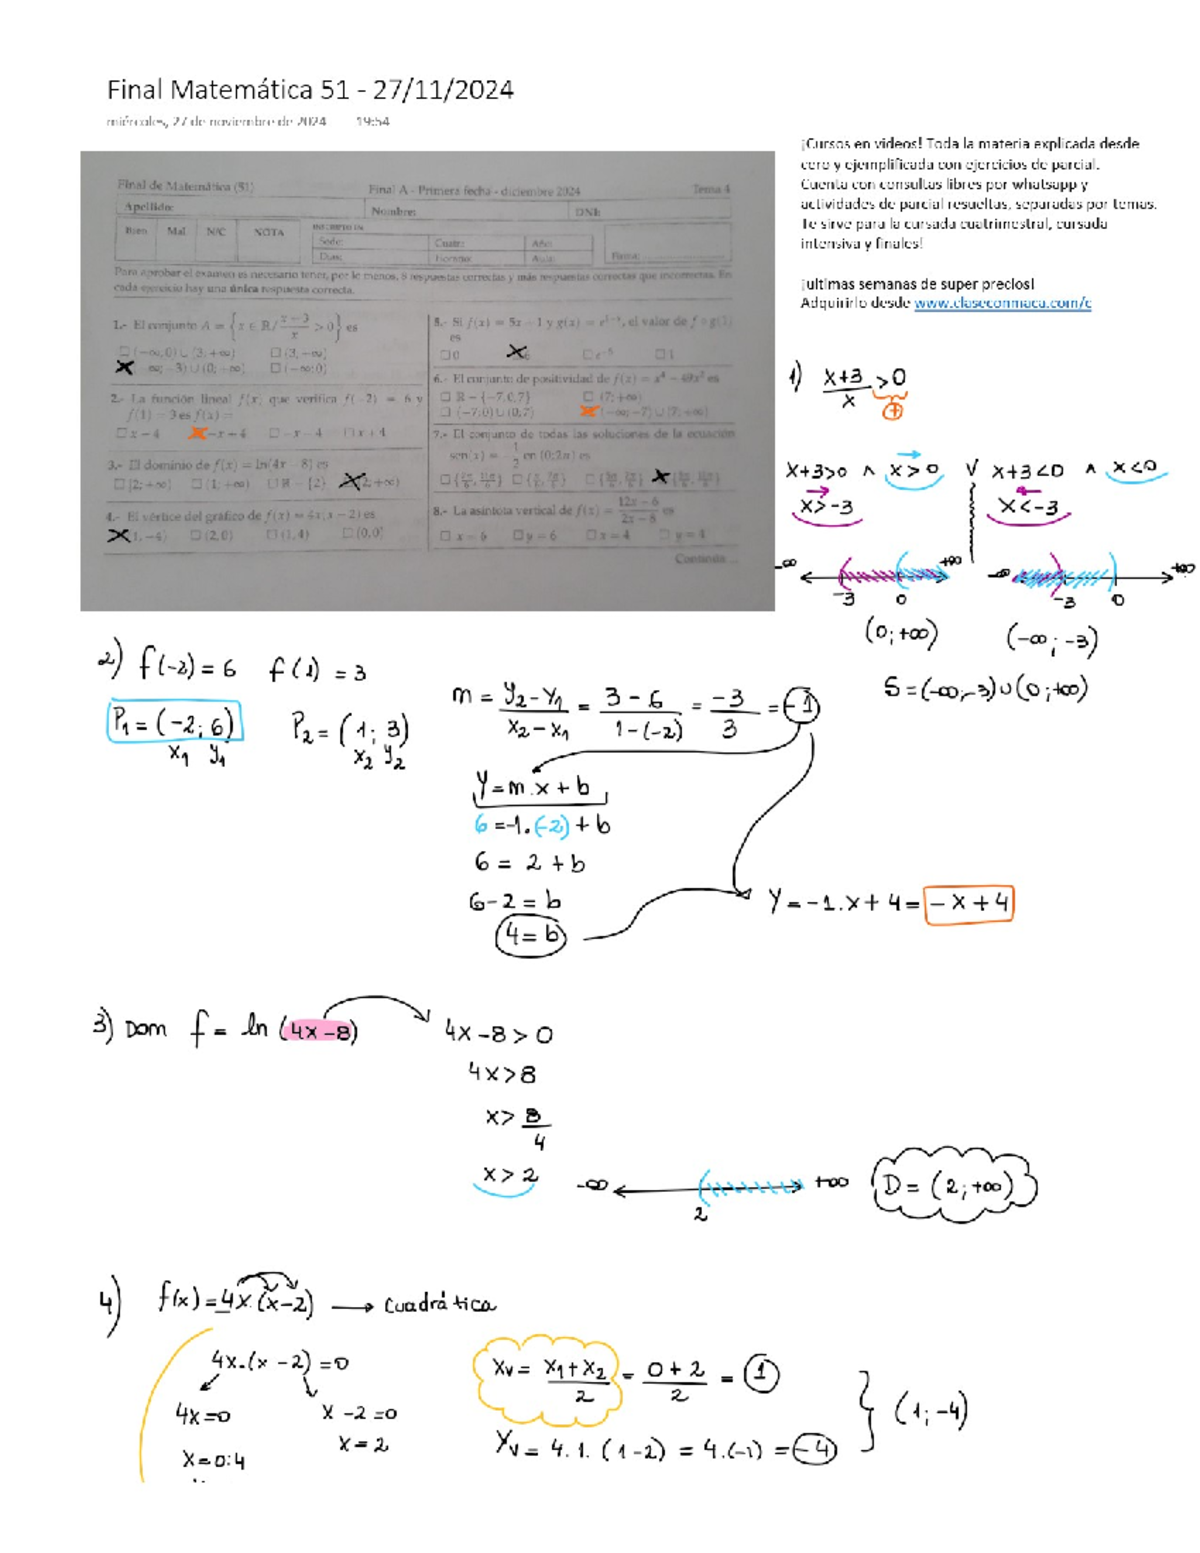 Final Matemática 51 - 27/11/2024
miércoles, 27 de noviembre de 2024 19:54
¡Cursos en videos! Toda la materia explicada desde
cero y ejemplificada con ejercicios de parcial.
Cuenta con consultas libres por whatsapp y
actividades de parcial resueltas, separadas por temas.
Te sirve para la cursada cuatrimestral, cursada
intensiva y finales!
¡ultimas semanas de super precios!
Adquirirlo desde www.claseconmaca.com/c
Final de Matemática (51) Final A - Primera fecha - diciembre 2024 Tema 4
Apellido: Nombre: DNI:
Bien Mal N/C NOTA
INSCRIPTO EN:
Sede: Cuatr: Año:
Días: Horario: Aula: Firma:
Para aprobar el examen es necesario tener, por lo menos, 8 respuestas correctas y más respuestas correctas que incorrectas. En
cada ejercicio hay una única respuesta correcta.
1.- El conjunto A = {x ∈ ℝ/ x+3/x > 0} es
☐ (−∞;0) ∪ (3;+∞) ☐ (3;+∞)
∞;−3) ∪ (0;+∞) ☐ (−∞;0)
2.- La función lineal f(x) que verifica f(−2) = 6 y
f(1) = 3 es f(x) =
☐ x − 4 −x + 4 ☐ −x − 4 ☐ x + 4
3.- El dominio de f(x) = ln(4x − 8) es
☐ [2;+∞) ☐ (1;+∞) ☐ ℝ − {2} 2;+∞)
4.- El vértice del gráfico de f(x) = 4x(x − 2) es
1,−4) ☐ (2,0) ☐ (1,4) ☐ (0,0)
5.- Si f(x) = 5x − 1 y g(x) = , el valor de f ∘ g(1)
es
☐ 0 ☐ 1
6.- El conjunto de positividad de f(x) = x⁴ − 49x² es
☐ ℝ − {−7,0,7} ☐ (7;+∞)
☐ (−7;0) ∪ (0;7) (−∞;−7) ∪ (7;+∞)
7.- El conjunto de todas las soluciones de la ecuación
sen(x) = −1/2 en [0;2π] es
8.- La asíntota vertical de f(x) = 12x − 6/2x − 8 es
☐ x = 6 ☐ y = 6 ☐ x = 4 ☐ y = 4
Continúa ...
1) x+3/x > 0
+
x+3>0 ∧ x>0 ∨ x+3<0 ∧ x<0
x>-3 x<-3
-∞ -3 0 +∞ -∞ -3 0 +∞
(0;+∞) (-∞;-3)
S=(-∞,-3)∪(0;+∞)
2) f(-2)=6 f(1)=3
P1=(-2;6) P2=(1;3)
x1 y1 x2 y2
m = y2-y1/x2-x1 = 3-6/1-(-2) = -3/3 = -1
y=m.x+b
6=-1.(-2)+b
6= 2+b
6-2=b
4=b
y=-1.x+4= -x+4
3) Dom f= ln (4x-8)
4x-8>0
4x>8
x> 8/4
x>2
-∞ 2 +∞
D=(2;+∞)
4) f(x)=4x.(x-2) → cuadrática
4x.(x-2)=0
4x=0 x-2=0
x=0:4 x=2
Xv= x1+x2/2 = 0+2/2 = 1
Yv=4.1.(1-2)=4.(-1)=-4
(1;-4)